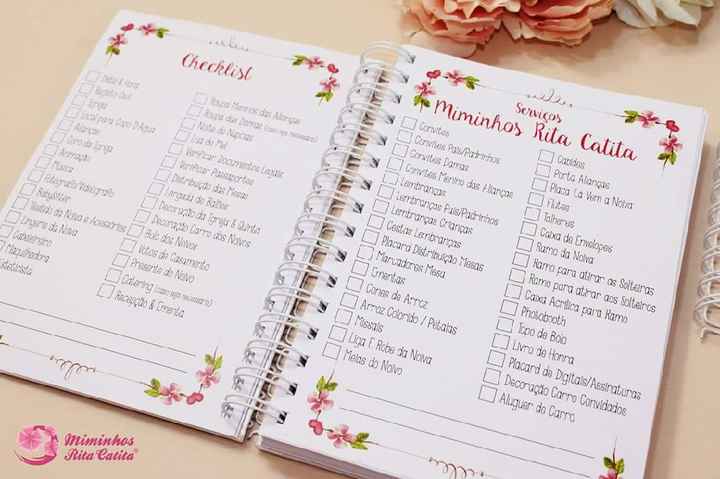 Checklist
Data & Hora
Registo Civil
Igreja
Local para Copo D'Água
Alianças
Coro da Igreja
Animação
Música
Fotógrafo/Videógrafo
Babysitter
Vestido da Noiva e Acessórios
Lingerie da Noiva
Cabeleireiro
Maquilhadora
Esteticista
Roupa Meninos das Alianças
Roupa das Damas (caso seja necessário)
Noite de Núpcias
Lua de Mel
Verificar Documentos Legais
Verificar Passaportes
Distribuição das Mesas
Largada de Balões
Decoração da Igreja & Quinta
Decoração Carro dos Noivos
Bolo dos Noivos
Votos de Casamento
Presente do Noivo
Catering (caso seja necessário)
Receção & Ementa
Serviços
Miminhos Rita Catita
Convites
Convites Pais/Padrinhos
Convites Damas
Convites Menino das Alianças
Lembranças
Lembranças Pais/Padrinhos
Lembranças Crianças
Cestas Lembranças
Placard Distribuição Mesas
Marcadores Mesa
Ementas
Cones de Arroz
Arroz Colorido / Pétalas
Missais
Liga E Robe da Noiva
Meias do Noivo
Cabides
Porta Alianças
Placa Lá Vem a Noiva
Flûtes
Talheres
Caixa de Envelopes
Ramo da Noiva
Ramo para atirar às Solteiras
Ramo para atirar aos Solteiros
Caixa Acrílica para Ramo
Photobooth
Topo de Bolo
Livro de Honra
Placard de Digitais/Assinaturas
Decoração Carro Convidados
Aluguer do Carro
Miminhos
Rita Catita®